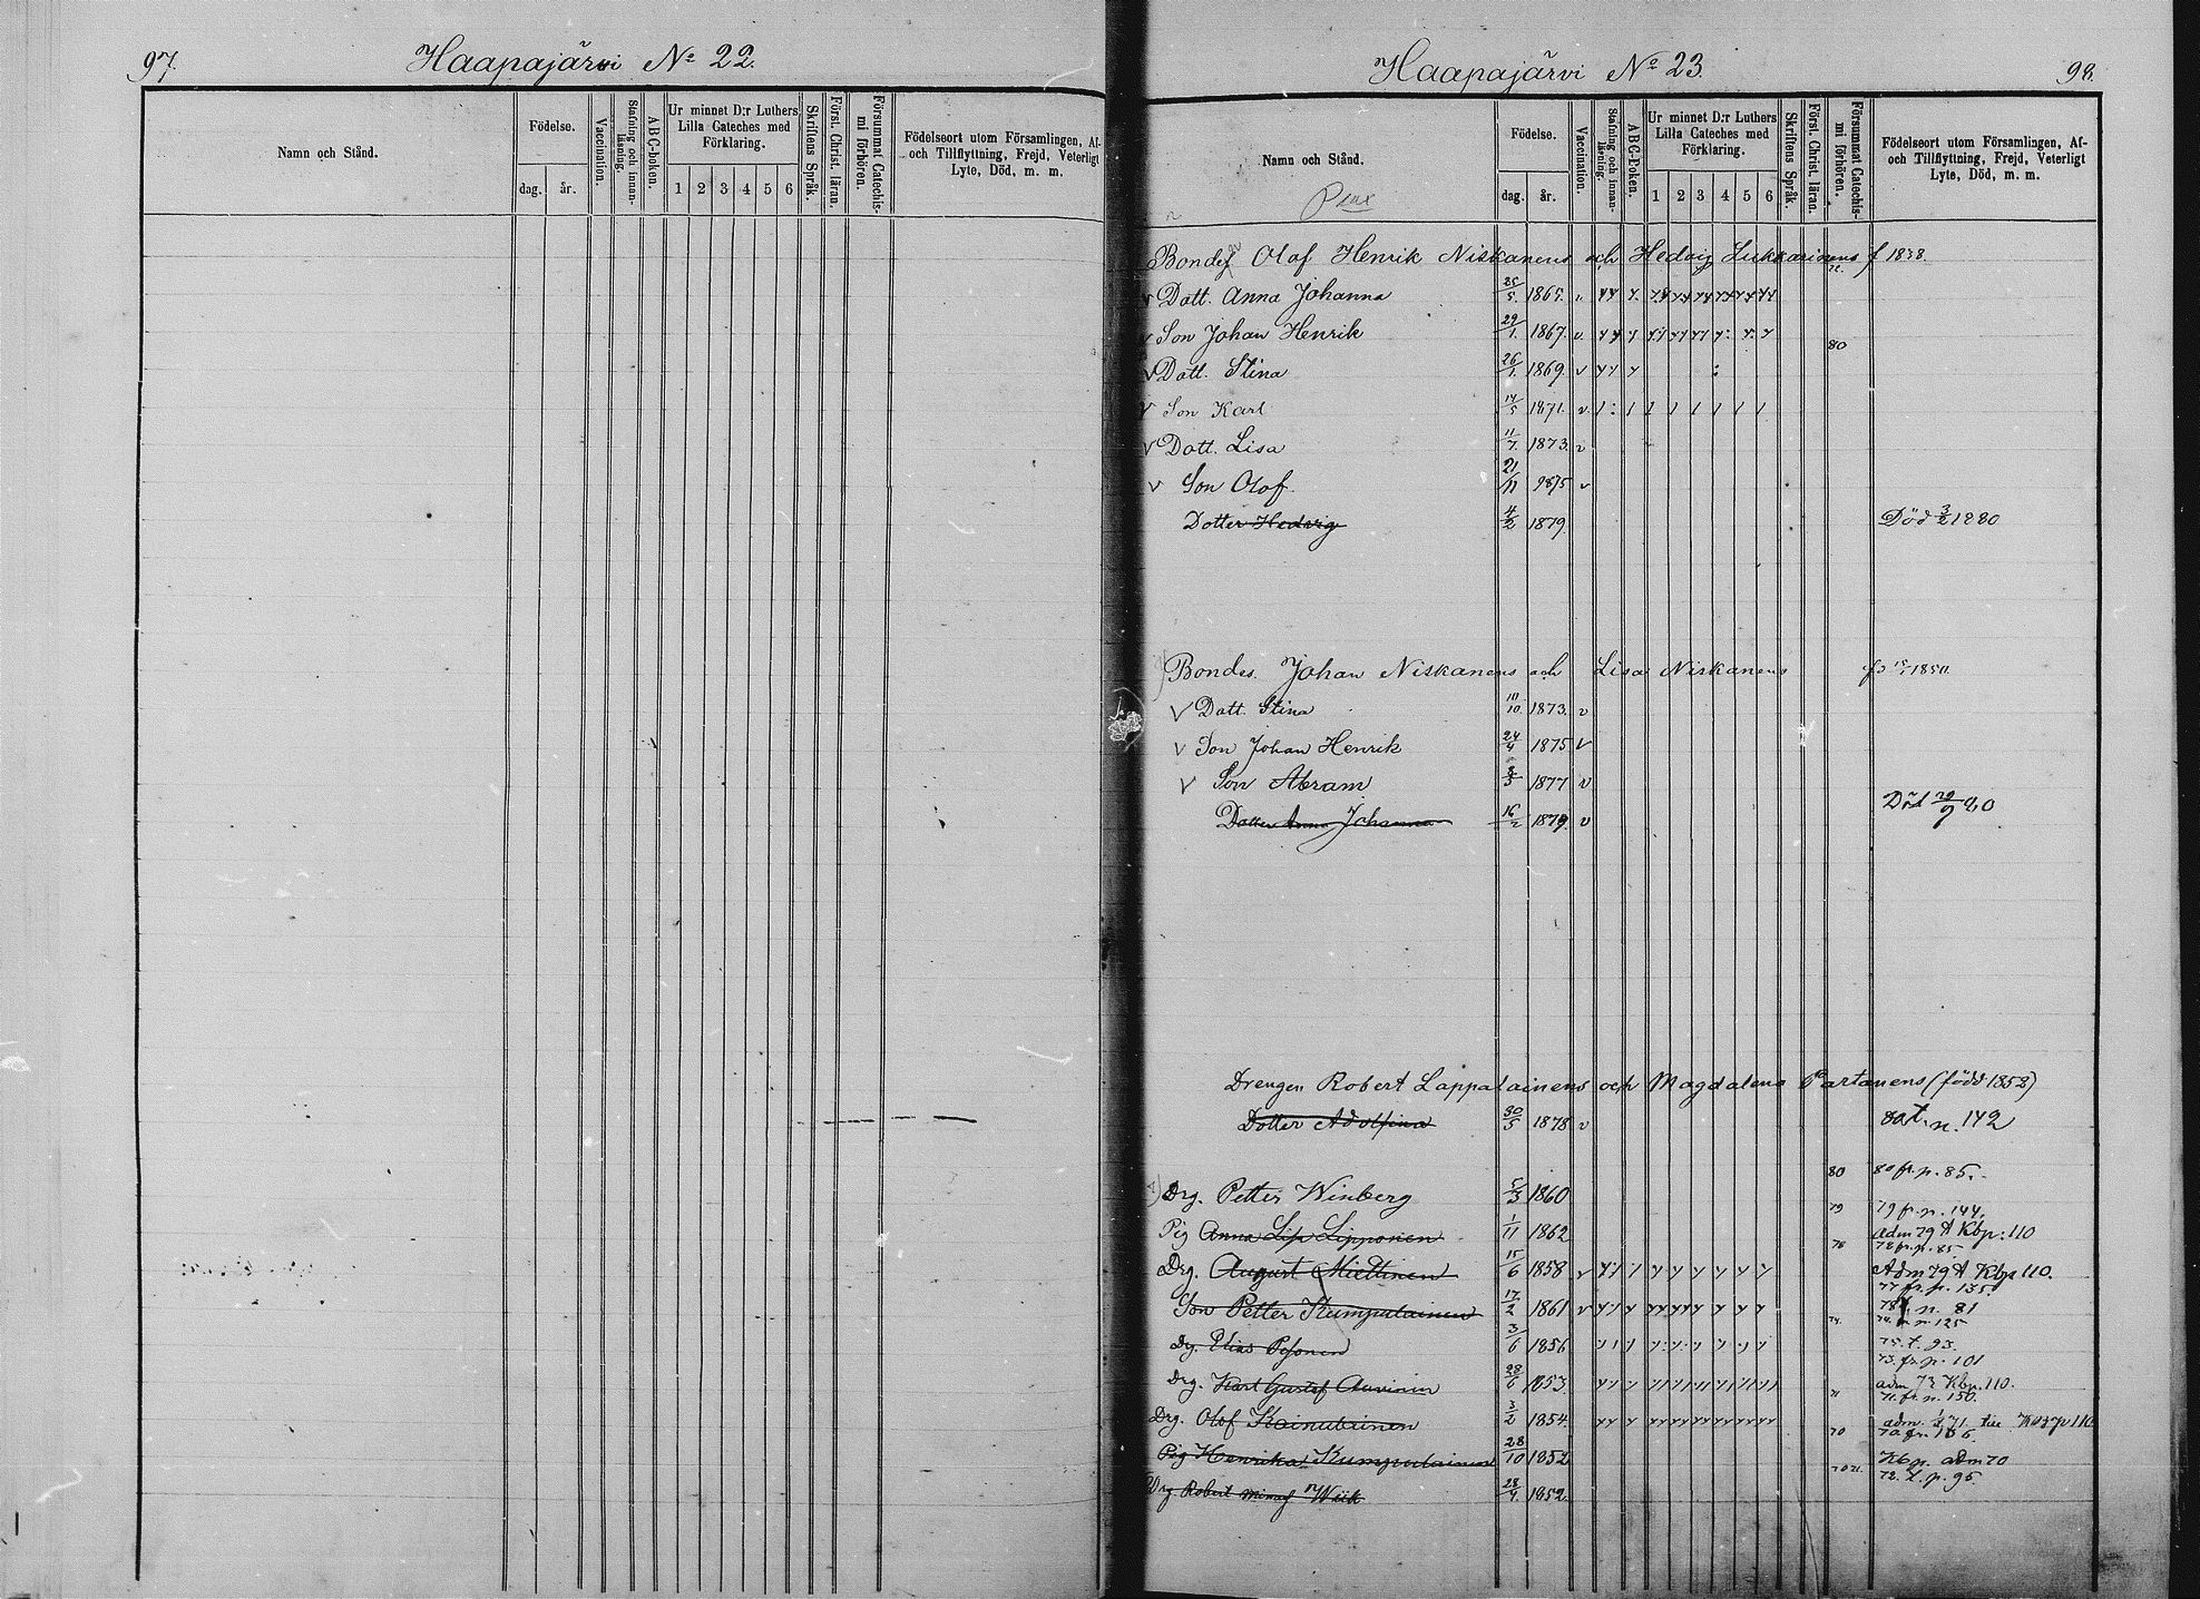 97.
Haapajärvi No 22.
Namn och Stånd.
Födelse.
dag. år.
Vaccination.
Stafning och innan-läsning.
ABC-boken.
Ur minnet D:r Luthers Lilla Cateches med Förklaring.
1 2 3 4 5 6
Skriftens Språk.
Först. Christ. läran.
Försummat Catechis-mi förhören.
Födelseort utom Församlingen, Af- och Tillflyttning, Frejd, Veterligt Lyte, Död, m. m.
Haapajärvi No 23.
98.
Namn och Stånd.
Födelse.
dag. år.
Vaccination.
Stafning och innan-läsning.
ABC-boken.
Ur minnet D:r Luthers Lilla Cateches med Förklaring.
1 2 3 4 5 6
Skriftens Språk.
Först. Christ. läran.
Försummat Catechis-mi förhören.
Födelseort utom Församlingen, Af- och Tillflyttning, Frejd, Veterligt Lyte, Död, m. m.
Olof Henrik Niskanens och Hedvig Lukkarinens f 1838.
v Dott. Anna Johanna 25/5. 1865.
v Son Johan Henrik 29/1. 1867. v. 80
v Dott. Stina 26/1. 1869. v
v Son Karl 14/5 1871. v.
v Dott. Lisa 11/7. 1873. v
v Son Olof 21/11 1875 v
Dotter Hedvig 4/2 1879. Död 3/2 1880
Bondes. Johan Niskanens och Lisa Niskanens
v Dott. Stina 1873. v
v Son Johan Henrik 24/4 1875 v
v Son Abram 8/5 1877 v
Dotter Anna Johanna 16/2 1879. v Död 29/9 80
Drengen Robert Lappalainens och Magdalena Partanens (född 1858)
Dotter Adolfina 30/5 1878 v 80 t. n. 142
Drg. Petter Winberg 5/3 1860 80 80 fr. n. 85.
Pig Anna Lisa Lipponen 1/11 1862 79 79 fr. n. 144.
adm 79 A Kbp: 110
Drg. August Miettinen 15/6 1858 v 78 78 fr. n. 85
Adm 79 A Kbp 110.
Son Petter Kumpulainen 17/2 1861 v 77 fr. n. 135.
78 t. n. 81
Dg. Elias Pesonen 3/6 1856 74. 74. fr. n. 125
75. t. 93.
Drg. Karl Gustaf Auvinen 28/6 1853. 73. fr. n. 101
adm 73 Kbp. 110.
Drg. Olof Kainulainen 3/2 1854. 71 71. fr. n. 150.
adm. 71
Pig Henrika Kumpulainen 28/10 1852 70
Kbp. adm 70
Drg Robert Wiik 28/4. 1852. 72. t. p. 95